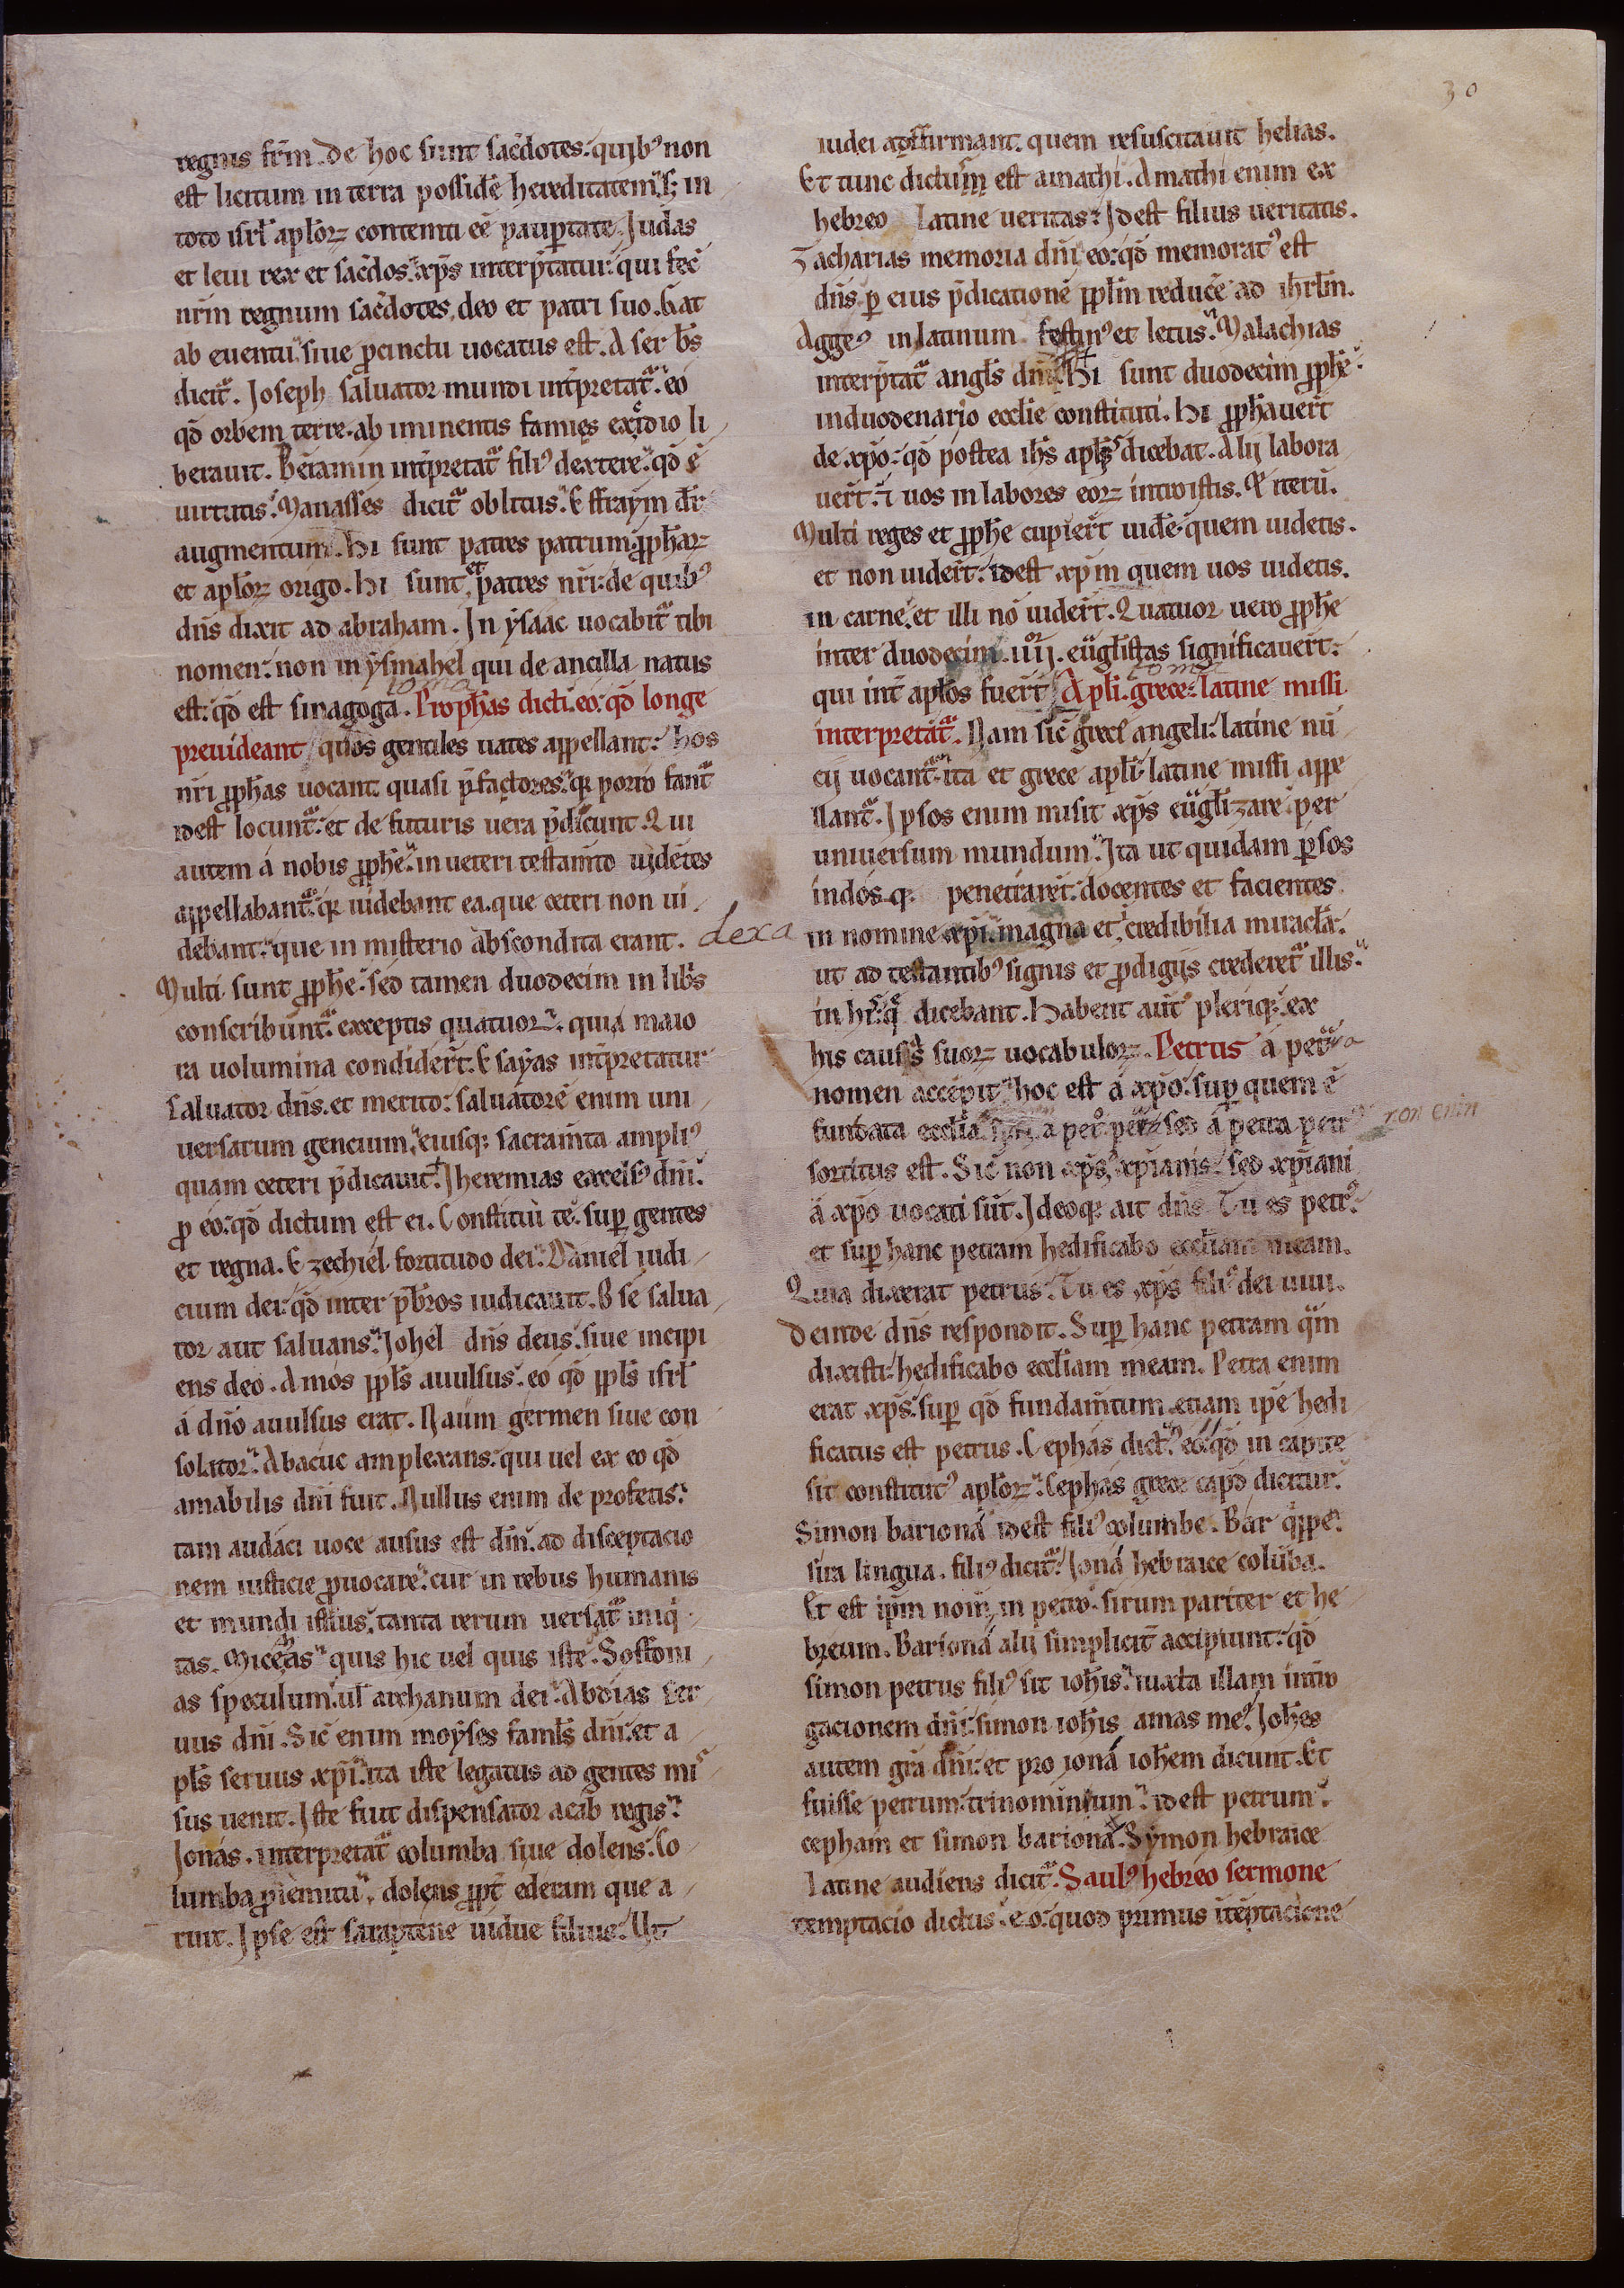 30
regnis frm̄. de hoc sunt sac̄dotes: quib᾽ non
est licitum in terra possidē hereditatem: s; in
toto isrl̄ apl̄oꝝ contenti eē paup̄tate. Judas
et leui rex et sac̄dos: xp̄s interp̄tatur: qui fec̄
nrm̄ regnum sac̄dotes. deo et patri suo. Gat
ab euentu: siue p̄cinctu uocatus est. Aser b̄s
dicit᷑. Joseph saluator mundi int̄pretat᷑: eo
qd̄ orbem terre. ab iminentis famis exidio li
berauit. Beīamin int̄pretat᷑ fili᾽ dextere: qd̄ ē
uirtutis. Manasses dicit᷑ oblitus. Effraym dr̄
augmentum. Hi sunt patres patrum: ꝓphaꝝ
et apl̄oꝝ origo. Hi sunt et patres nr̄i: de quib᾽
dn̄s dixit ad abraham. In ysaac uocabit᷑ tibi
nomen: non in ysmahel qui de ancilla natus
est: qd̄ est sinagoga. Prophas dicti. eo: qd̄ longe
preuideant quos gentiles uates appellant: hos
nr̄i ꝓphas uocant quasi p̄factores: q; porro fant᷑
idest locunt᷑: et de futuris uera p̄dicunt. Qui
autem á nobis ꝓphē: in ueteri testam̄to uidētes
appellabant᷑: q; uidebant ea. que ceteri non ui
debant: que in misterio abscondita erant. dexa
Multi sunt ꝓphē: sed tamen duodecim in libris
conscribunt᷑. exceptis quatuor: quia maio
ra uolumina condidert̄. Esayas int̄pretatur
Saluator dn̄s. et merito: saluatorē enim uni
uersarum gencium: eiusq; sacram̄ta ampli᾽
quam ceteri p̄dicauit. Jheremias excels᾽ dn̄i.
ꝓ eo: qd̄ dictum est ei. Constitui te sup̄ gentes
et regna. Ezechiel fortitudo dei. Daniel iudi
cium dei: qd̄ inter p̄bros iudicauit. Ose salua
tor aut saluans. Johel dn̄s deus: siue incipi
ens deo. Amos ppl̄s auulsus. eo qd̄ ppl̄s isrl̄
á dn̄o auulsus erat. Naum germen siue con
solator. Abacuc amplexans: qui uel ex eo qd̄
amabilis dn̄i fuit. Nullus enim de profetis:
tam audaci uoce ausus est dn̄m. ad disceptacio
nem iusticie ꝓuocare: cur in rebus humanis
et mundi istius, tanta rerum uersat᷑ iniq
tas. Miceas quis hic uel quis iste. Sofoni
as speculum: ul̄ archanum dei. Abdias ser
uus dn̄i. Sic̄ enim moyses faml̄s dn̄i: et a
pl̄s seruus xp̄i: ita iste legatus ad gentes mis
sus uenit. Iste fuit dispensator acab regis.
Jonas. interpretat᷑ columba siue dolens. Co
lumba ꝓ gemitu, dolens ꝓpt̄ ederam que a
ruit. Ipse est saraptene uidue filius. Ut
iudei affirmant. quem resuscitauit helias.
Et tunc dictum est amathi. Amathi enim ex
hebreo Latine ueritas: Idest filius ueritatis.
Zacharias memoria dn̄i eo: qd̄ memorat᾽ est
dn̄s. p̄ eius p̄dicationē ppl̄m reducē ad ihrl̄m.
Agge᾽ in latinum festin᾽ et letus. Malachias
interp̄tat᷑ angl̄s dn̄i. Hi sunt duodecim ꝓphē.
induodenario eccl̄ie constituti. Hi ꝓphauert̄
de xp̄o: qd̄ postea ih̄s apl̄is dicebat. Alij labora
uert̄: et uos in labores eoꝝ introistis. Et iterū.
Multi reges et ꝓphē cupiert̄ uidē. quem uidetis.
et non uidert̄: idest xp̄m quem uos uidetis.
in carne, et illi nō uidert̄. Quatuor uero ꝓphē
inter duodecim .iiij. eūgl̄istas significauert̄:
qui int̄ apl̄os fuert̄. Apl̄i. grece: latine missi
interpretat᷑. Nam sic̄ grece angeli: latine nū
cij uocant᷑: ita et grece apl̄i. latine missi appe
llant᷑. Ipsos enim misit xp̄s eūgl̄izare: per
uniuersum mundum. Ita ut quidam p̄sos
indos q; penetraret̄: docentes et facientes
in nomine xp̄i: magna et, credibilia miracl̄a:
ut ad testantib᾽ signis et ꝓdigijs crederet᷑ illis.
in hi: q dicebant. Habent aut̄ pleriq; ex
his causis suoꝝ uocabuloꝝ. Petrus á petra
nomen accepit: hoc est á xp̄o: sup̄ quem ē
fundata eccl̄ia. á pet᾽ petra sed á petra petr᾽ non enim
sortitus est. Sic̄ non xp̄s, xp̄ianis: sed xp̄iani
á xp̄o uocati sūt. Ideoq; ait dn̄s Tu es petr᾽.
et sup̄ hanc petram hedificabo eccl̄iam meam.
Quia dixerat petrus: Tu es xp̄s fili᾽ dei uiui.
deinde dn̄s respondit. Sup̄ hanc petram qm̄
dixisti: hedificabo eccl̄iam meam. Petra enim
erat xp̄s: sup̄ qd̄ fundam̄tum etiam ipē hedi
ficatus est petrus. Cephas dict᾽. eo: qd̄ in capite
sit constitut᾽ apl̄oꝝ: Cephas grece capd̄ dicitur.
Simon bariona idest fili᾽ columbe. Bar qippe
sira lingua. fili᾽ dicit᷑. Ioná hebraice colūba.
Et est ipm̄ noīn, in petro. sirum pariter et he
breum. Barioná alij simplicit̄ accipiunt: qd̄
simon petrus fili᾽ sit ioh̄is: iuxta illam intro
gacionem dn̄i: simon ioh̄is amas me. Joh̄es
autem gr̄a dn̄i: et pro ioná ioh̄em dicunt. Et
fuisse petrum: trinominium: idest petrum.
cepham et simon bariona. Symon hebraice
Latine audiens dicit᷑. Saul᾽ hebreo sermone
temptacio dictus. eo: quod primus ītēptacione